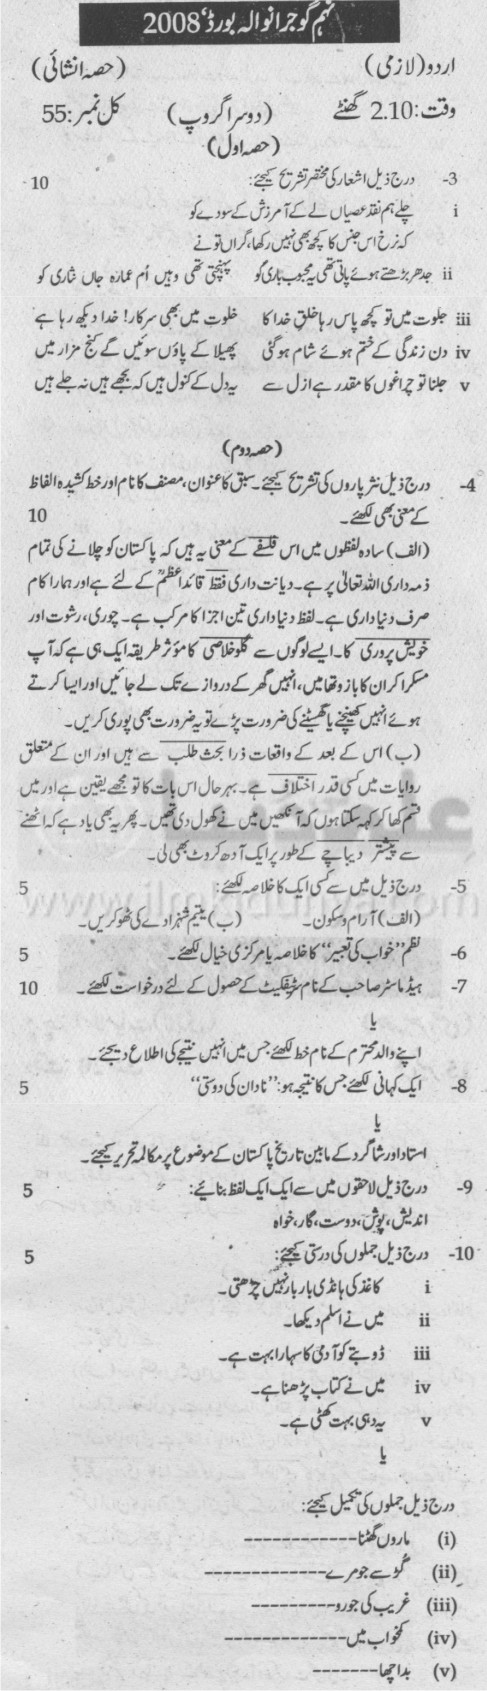 نہم گوجرانوالہ بورڈ، 2008
اردو (لازمی) (حصہ انشائی)
وقت: 2.10 گھنٹے (دوسرا گروپ) کل نمبر: 55
(حصہ اول)
3- درج ذیل اشعار کی مختصر تشریح کیجئے: 10
i چلے ہم نقد عصیاں لے کے آمرزش کے سودے کو
کہ نرخ اس جنس کا کچھ بھی نہیں رکھا، گراں تو نے
ii جدھر بڑھتے ہوئے پاتی تھی یہ محبوب باری کو پہنچتی تھی وہیں اُم عمارہ جاں نثاری کو
iii جلوت میں تو کچھ پاس رہا خلقِ خدا کا خلوت میں بھی سرکار! خدا دیکھ رہا ہے
iv دن زندگی کے ختم ہوئے شام ہو گئی پھیلا کے پاؤں سوئیں گے کنج مزار میں
v جلنا تو چراغوں کا مقدر ہے ازل سے یہ دل کے کنول ہیں کہ بجھے ہیں نہ جلے ہیں
(حصہ دوم)
4- درج ذیل نثر پاروں کی تشریح کیجئے۔ سبق کا عنوان، مصنف کا نام اور خط کشیدہ الفاظ
کے معنی بھی لکھئے۔ 10
(الف) سادہ لفظوں میں اس فلسفے کے معنی یہ ہیں کہ پاکستان کو چلانے کی تمام
ذمہ داری اللہ تعالیٰ پر ہے۔ دیانت داری فقط قائداعظمؒ کے لئے ہے اور ہمارا کام
صرف دنیا داری ہے۔ لفظ دنیا داری تین اجزا کا مرکب ہے۔ چوری، رشوت اور
خویش پروری کا۔ ایسے لوگوں سے گلو خلاصی کا مؤثر طریقہ ایک ہی ہے کہ آپ
مسکرا کر ان کا بازو تھامیں، انہیں گھر کے دروازے تک لے جائیں اور ایسا کرتے
ہوئے انہیں کھینچنے یا گھسیٹنے کی ضرورت پڑے تو یہ ضرورت بھی پوری کریں۔
(ب) اس کے بعد کے واقعات ذرا بحث طلب سے ہیں اور ان کے متعلق
روایات میں کسی قدر اختلاف ہے۔ بہرحال اس بات کا تو مجھے یقین ہے اور میں
قسم کھا کر کہہ سکتا ہوں کہ آنکھیں میں نے کھول دی تھیں۔ پھر یہ بھی یاد ہے کہ اٹھنے
سے پیشتر دیباچے کے طور پر ایک آدھ کروٹ بھی لی۔
5- درج ذیل میں سے کسی ایک کا خلاصہ لکھئے: 5
(الف) آرام و سکون۔ (ب) یتیم شہزادے کی ٹھوکریں۔
6- نظم "خواب کی تعبیر" کا خلاصہ یا مرکزی خیال لکھئے۔ 5
7- ہیڈ ماسٹر صاحب کے نام سرٹیفکیٹ کے حصول کے لئے درخواست لکھئے۔ 10
یا
اپنے والد محترم کے نام خط لکھئے جس میں انہیں نتیجے کی اطلاع دیجئے۔
8- ایک کہانی لکھئے جس کا نتیجہ ہو: "نادان کی دوستی" 5
یا
استاد اور شاگرد کے مابین تاریخ پاکستان کے موضوع پر مکالمہ تحریر کیجئے۔
9- درج ذیل لاحقوں میں سے ایک ایک لفظ بنائیے: 5
اندیش، پوش، دوست، گار، خواہ
10- درج ذیل جملوں کی درستی کیجئے: 5
i کاغذ کی ہانڈی بار بار نہیں چڑھتی۔
ii میں نے اسلم دیکھا۔
iii ڈوبتے کو آدمی کا سہارا بہت ہے۔
iv میں نے کتاب پڑھنا ہے۔
v یہ دہی بہت کھٹی ہے۔
یا
درج ذیل جملوں کی تکمیل کیجئے:
(i) ماروں گھٹنا------------
(ii) گُڑ سے جو مرے-------------
(iii) غریب کی جورو---------
(iv) کمخواب میں-------------
(v) بد اچھا-------
www.ilmkidunya.com